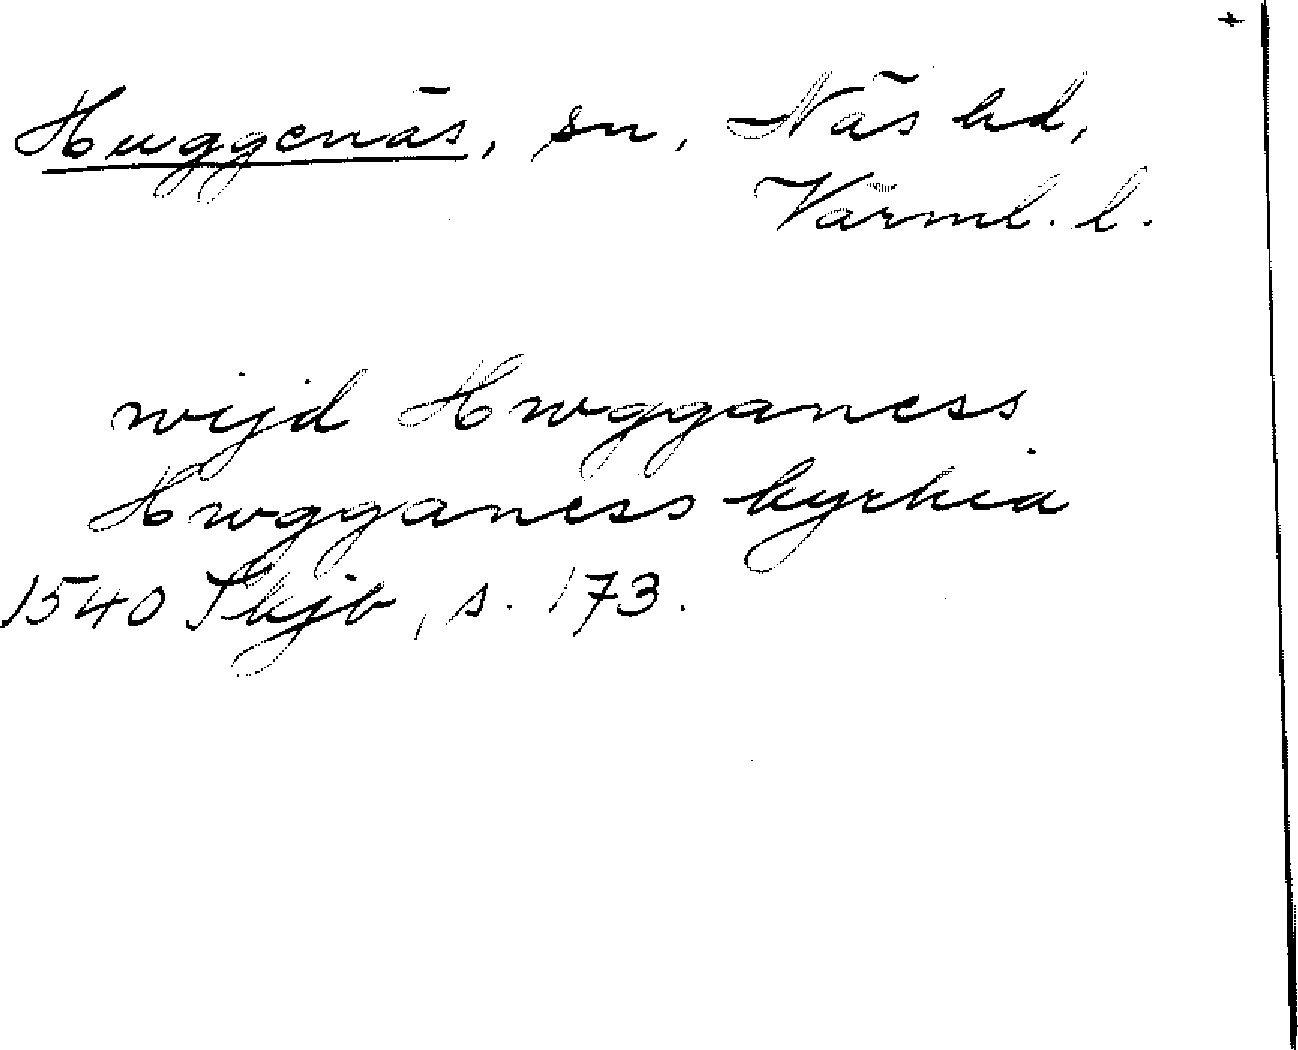 +
Huggenäs, sn, Näs hd,
Värml. l.
wijd Hwgganess
Hwgganess kyrkia
1540 Skjb, s. 173.